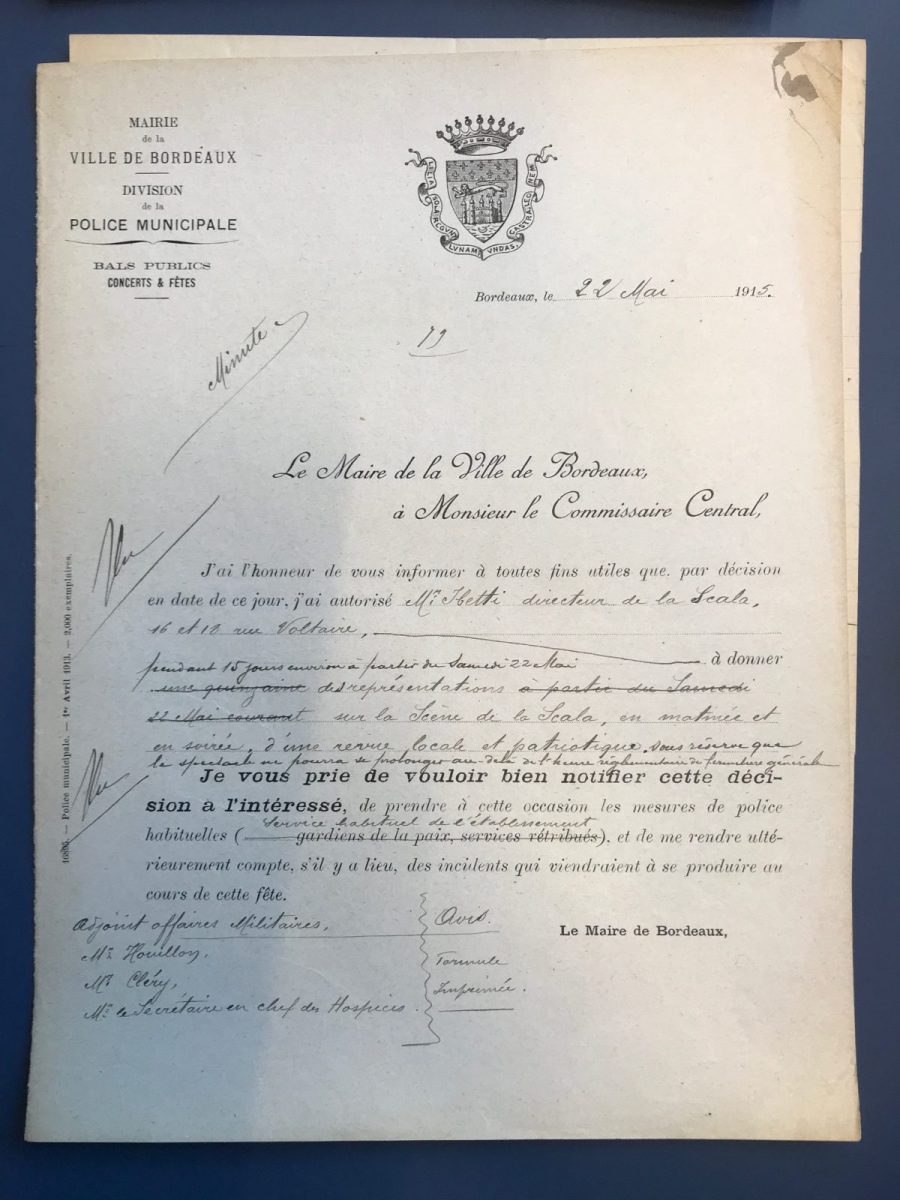 MAIRIE
de la
VILLE DE BORDEAUX
DIVISION
de la
POLICE MUNICIPALE
BALS PUBLICS
CONCERTS & FÊTES
LILIA SOLA REGUNT LUNAM UNDAS CASTRA LEONEM
Bordeaux, le 22 Mai 1915.
79
Minute
Le Maire de la Ville de Bordeaux,
à Monsieur le Commissaire Central,
Vu
J'ai l'honneur de vous informer à toutes fins utiles que, par décision
en date de ce jour, j'ai autorisé Mr. Hetti directeur de la Scala,
16 et 18 rue Voltaire,
pendant 15 jours environ à partir du Samedi 22 Mai à donner
une quinzaine des représentations à partir du Samedi
22 Mai courant sur la Scène de la Scala, en matinée et
en soirée, d'une revue locale et patriotique, sous réserve que
le spectacle ne pourra se prolonger au-delà de l'heure réglementaire de fermeture générale
Je vous prie de vouloir bien notifier cette déci-
sion à l'intéressé, de prendre à cette occasion les mesures de police
Service habituel de l'établissement
habituelles ( gardiens de la paix, services rétribués), et de me rendre ulté-
rieurement compte, s'il y a lieu, des incidents qui viendraient à se produire au
cours de cette fête.
Vu
16895. — Police municipale. — 1er Avril 1913. — 2,000 exemplaires.
Adjoint affaires Militaires,
Mr. Houillon.
Mr. Cléry,
Mr. le Secrétaire en chef des Hospices.
Avis.
Formule
Imprimée.
Le Maire de Bordeaux,